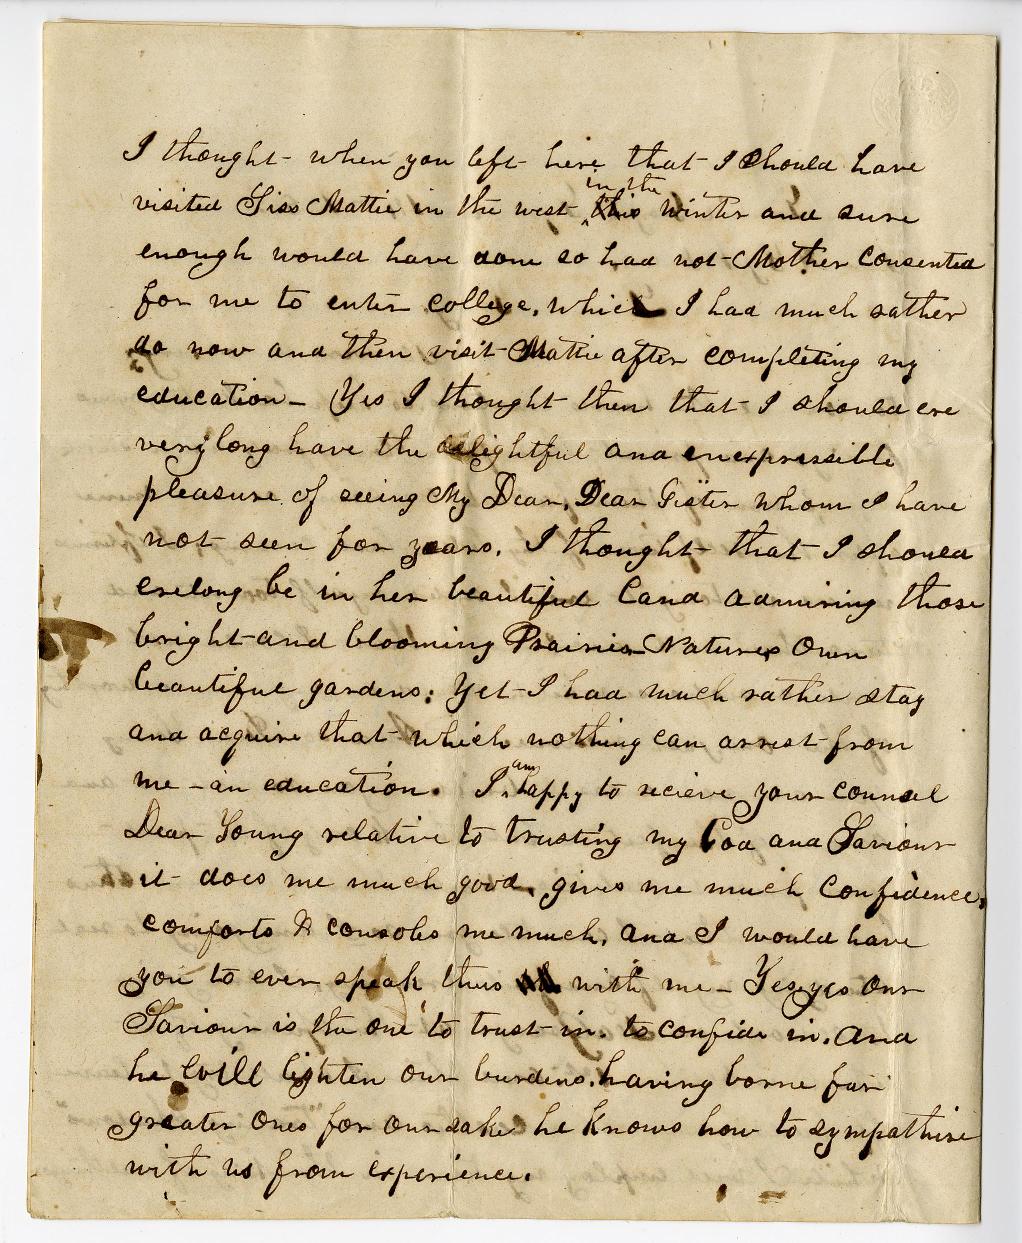 I thought- when you left- here that- I should have
visited Siss Mattie in the west in the winter and sure
enough would have done so had not- Mother consented
for me to enter college, which I had much rather
do now and then visit- Mattie after completing my
education_ Yes I thought then that- I should ere
very long have the delightful and inexpressible
pleasure of seeing My Dear, Dear Sister whom I have
not- seen for years. I thought- that I should
erelong be in her beautiful land admiring those
bright- and blooming Prairies_ Natures Own
beautiful gardens; Yet- I had much rather stay
and acquire that- which nothing can arrest- from
me - an education. I am happy to recieve your counsel
Dear Young relative to trusting my God and Saviour
it does me much good, gives me much confidence,
comforts & consoles me much, and I would have
you to ever speak thus with me_ Yes yes our
Saviour is the one to trust- in. to confide in. and
he will lighten our burdens. having borne far
greater ones for our sake he knows how to sympathise
with us from experience.